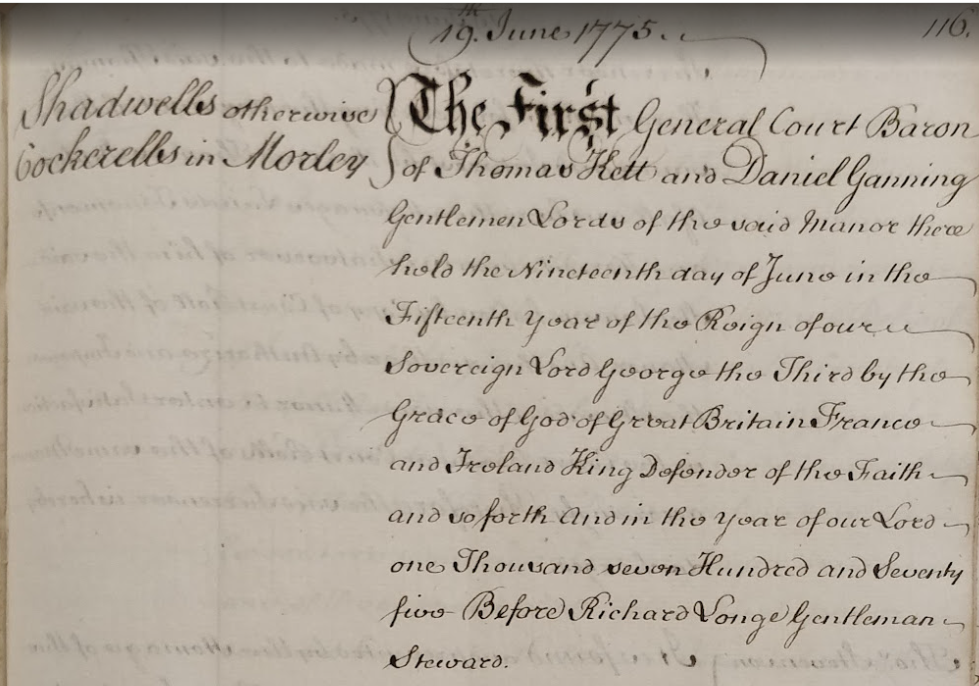 19.th June 1775.
116.
Shadwells otherwise
Cockerells in Morley
The First General Court Baron
of Thomas Kett and Daniel Ganning
Gentlemen Lords of the said Manor there
held the Nineteenth day of June in the
Fifteenth Year of the Reign of our
Sovereign Lord George the Third by the
Grace of God of Great Britain France
and Ireland King Defender of the Faith
and so forth And in the Year of our Lord
one Thousand seven Hundred and Seventy
five Before Richard Longe Gentleman
Steward.